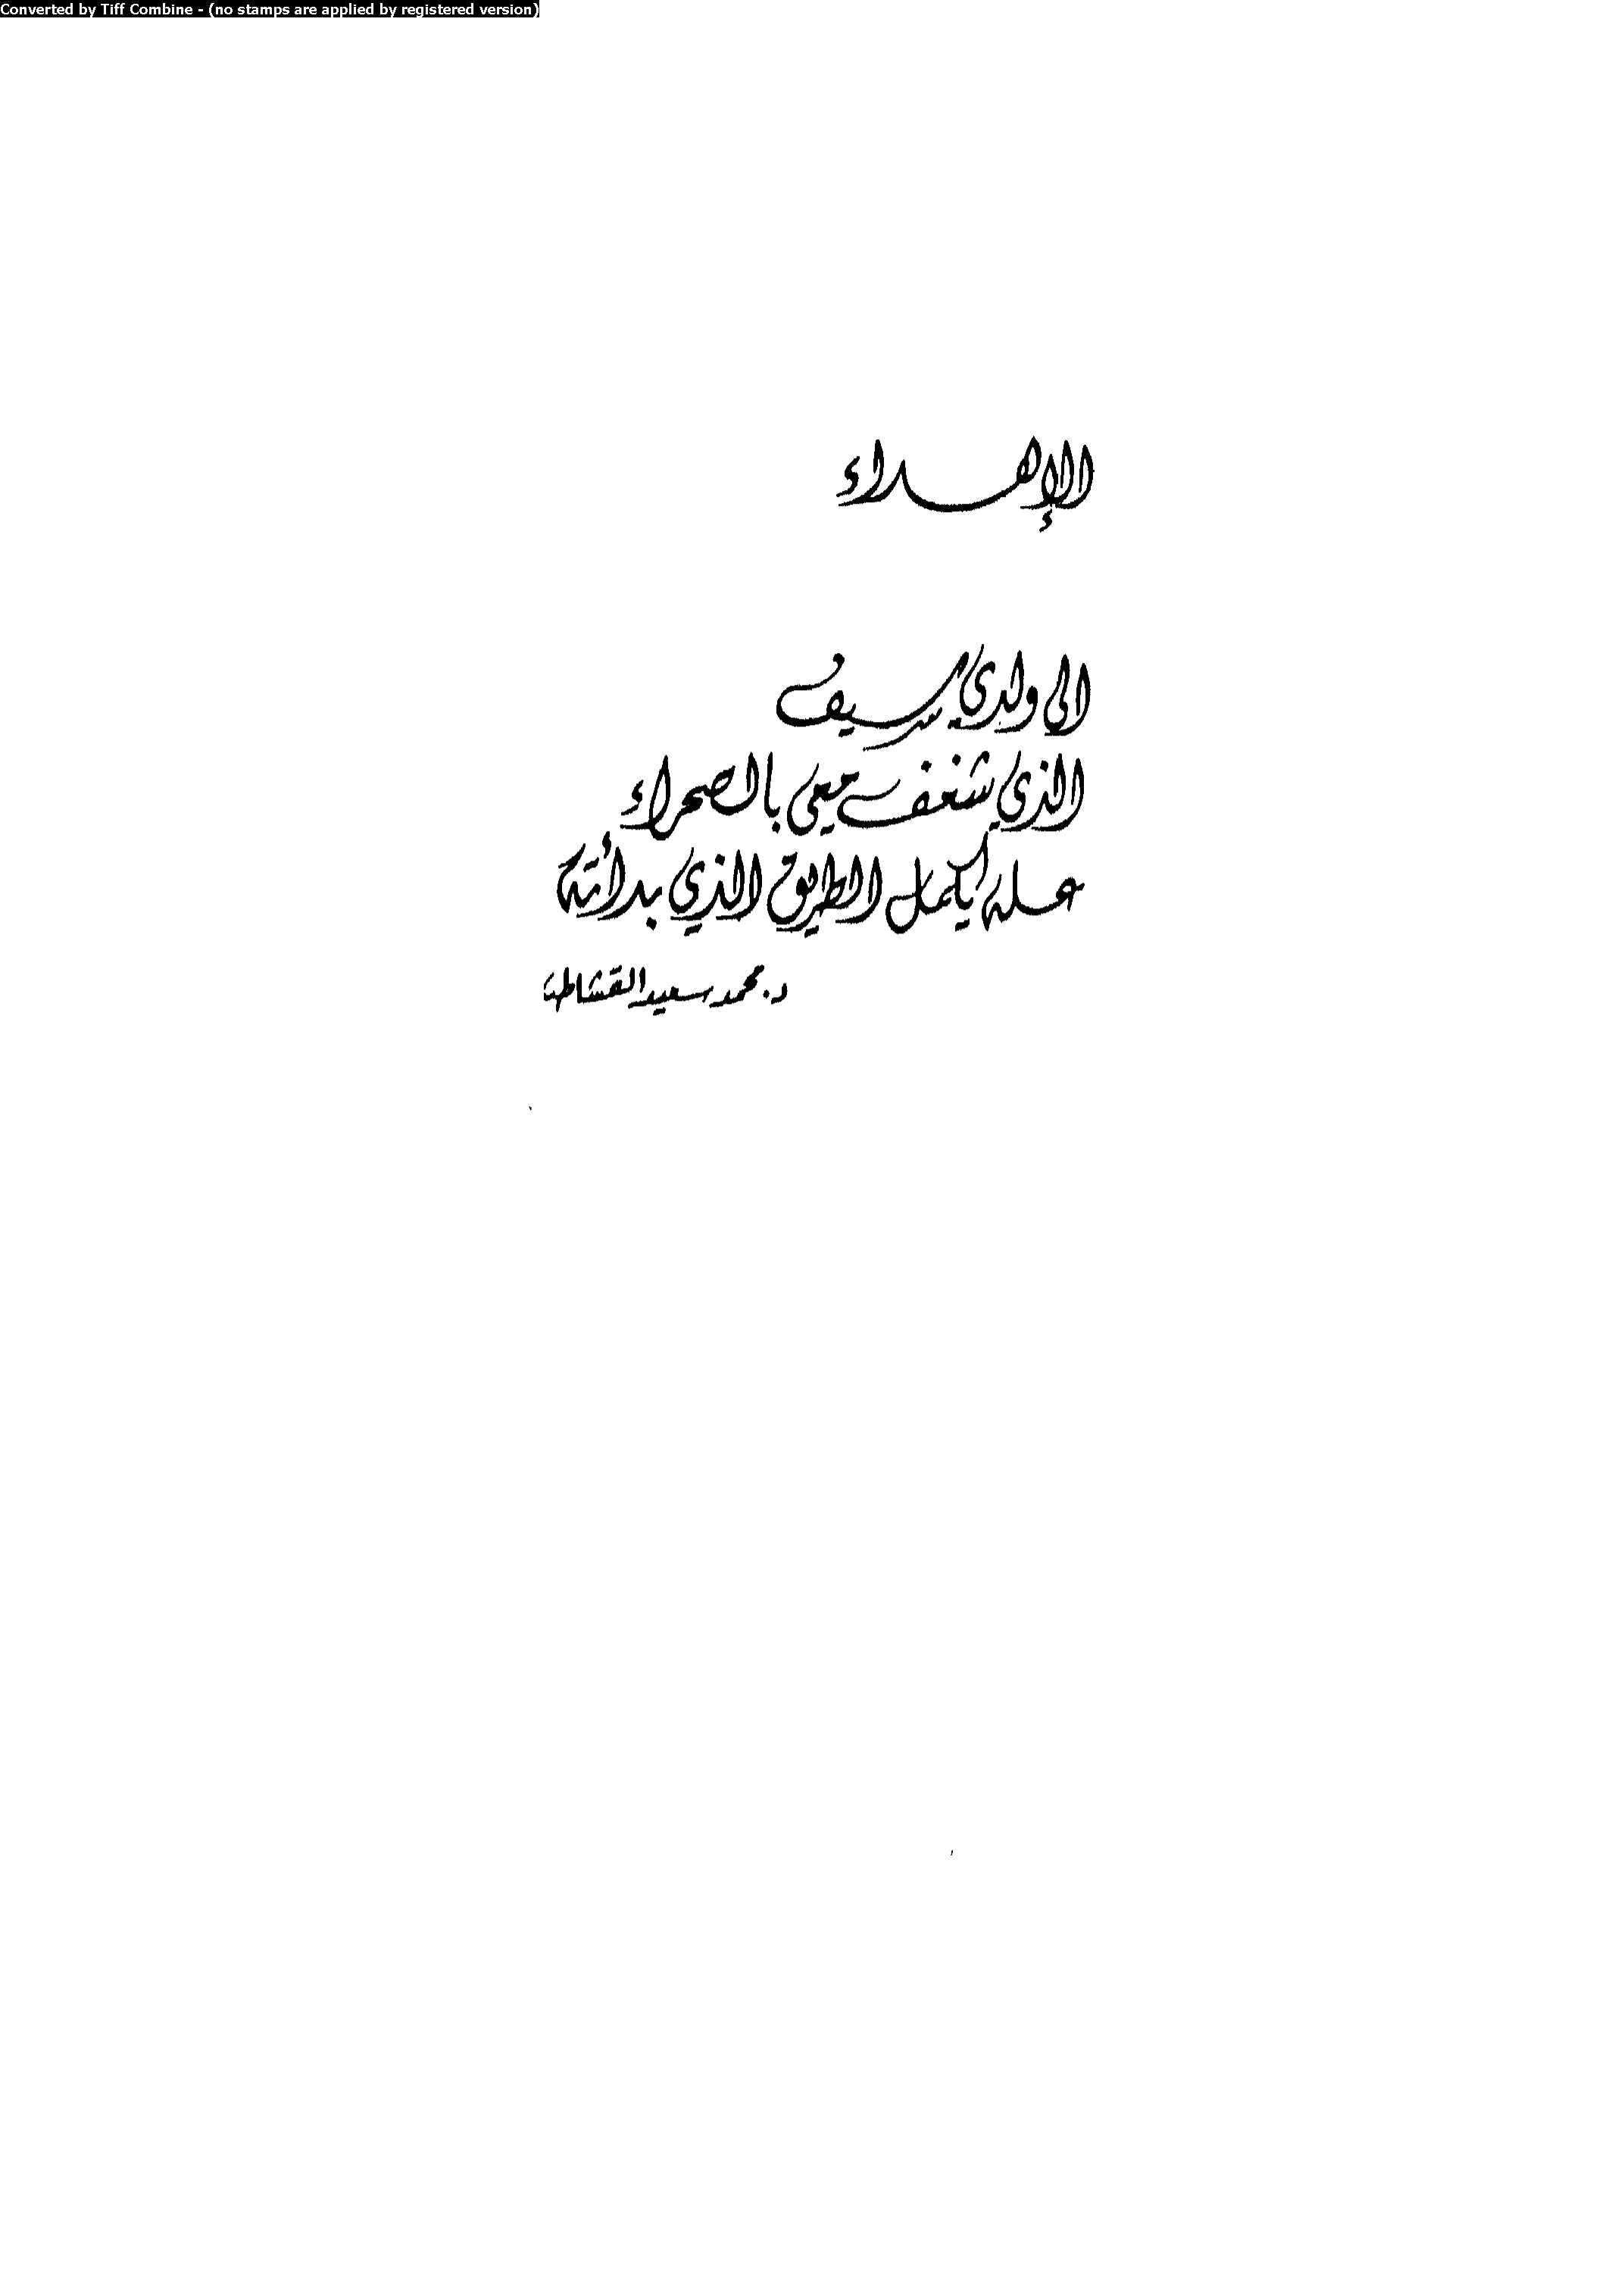 Converted by Tiff Combine - (no stamps are applied by registered version)
الإهداء
الى ولدي سيف
الذي شغف معي بالصحراء
عله يكمل الطريق الذي بدأته
د. محمد سعيد القشاط